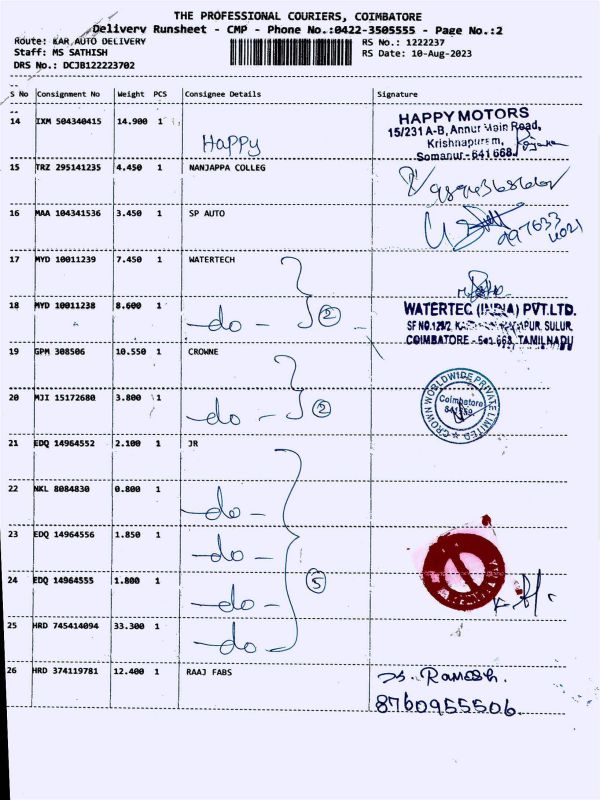 THE PROFESSIONAL COURIERS, COIMBATORE
Delivery Runsheet - CMP - Phone No.:0422-3505555 - Page No.:2
Route: KAR AUTO DELIVERY
RS No.: 1222237
Staff: MS SATHISH
RS Date: 10-Aug-2023
DRS No.: DCJB122223702
S No Consignment No Weight PCS Consignee Details Signature
14 IXM 504340415 14.900 1 Happy
HAPPY MOTORS
15/231 A-B, Annur Main Road,
Krishnapuram,
Somanur - 641 668.
15 TRZ 295141235 4.450 1 NANJAPPA COLLEG
16 MAA 104341536 3.450 1 SP AUTO
17 MYD 10011239 7.450 1 WATERTECH
18 MYD 10011238 8.600 1 -do- 2
WATERTEC (INDIA) PVT.LTD.
SF NO.129/2, SULUR,
COIMBATORE - 641 668, TAMILNADU
19 GPM 308506 10.550 1 CROWNE
20 MJI 15172680 3.800 1 -do- 2
CROWN WORLDWIDE PRIVATE LIMITED
Coimbatore
21 EDQ 14964552 2.100 1 JR
22 NKL 8084830 0.800 1 -do-
23 EDQ 14964556 1.850 1 -do-
24 EDQ 14964555 1.800 1 -do- 5
25 HRD 745414094 33.300 1 -do-
26 HRD 374119781 12.400 1 RAAJ FABS
Ramesh.
8760955506.